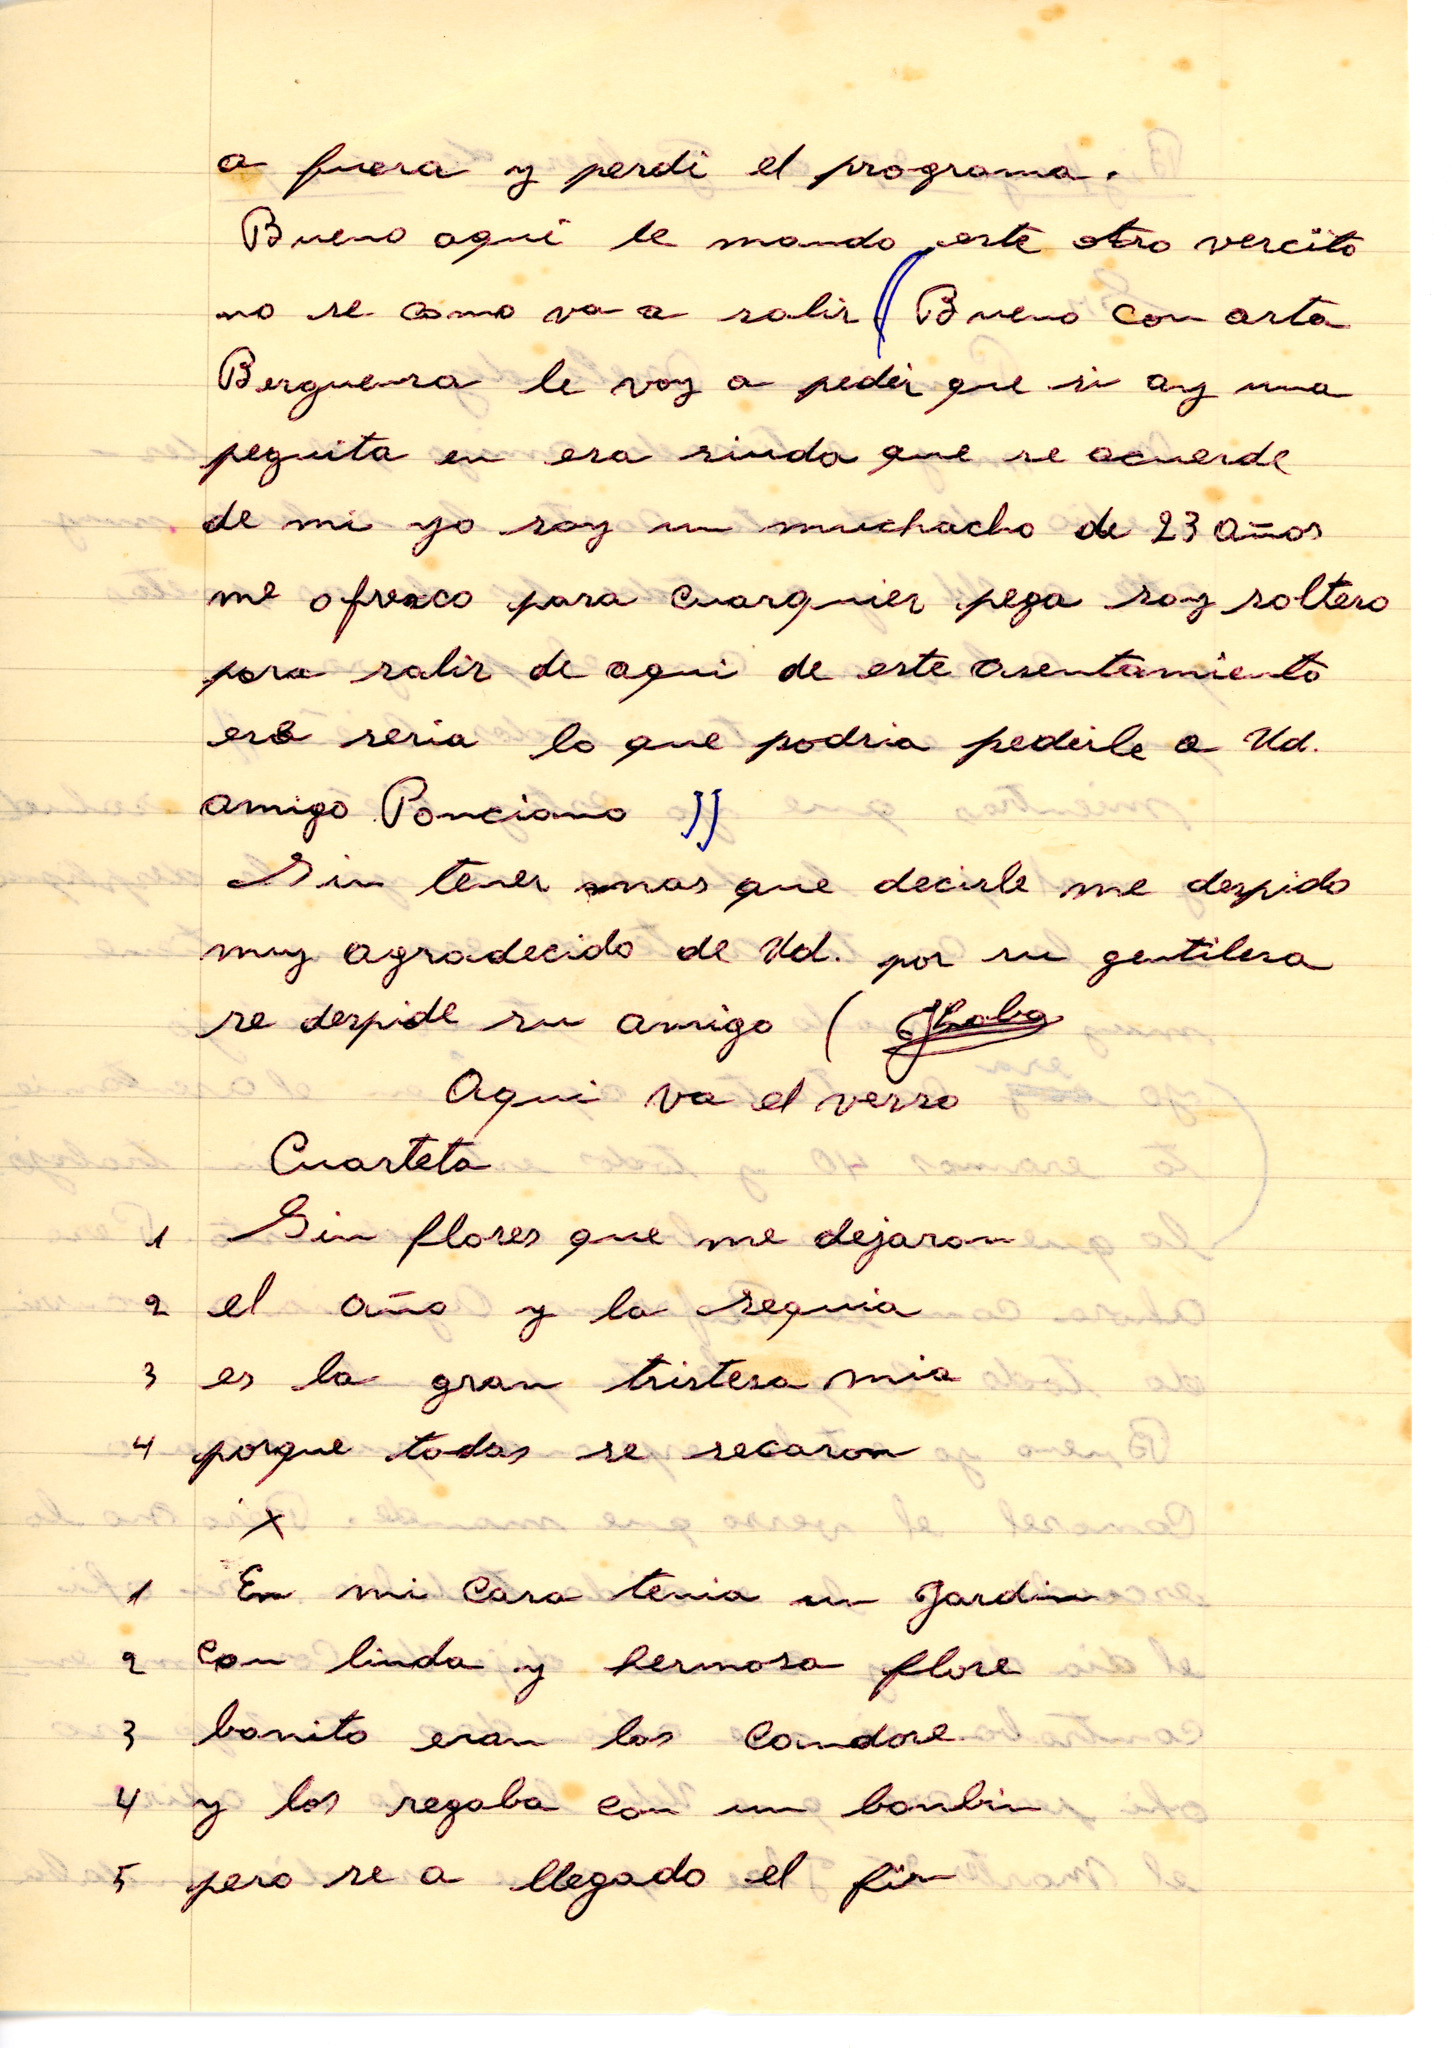 a fuera y perdi el programa.
Bueno aqui le mando este otro vercito
no se como va a salir (Bueno con arta
Berguensa le voy a pedir que si ay una
peguita en esa siuda que se acuerde
de mi yo soy un muchacho de 23 años
me ofresco para cuarquier pega soy soltero
para salir de aqui de este asentamiento
eso seria lo que podria pedirle a Ud.
amigo Ponciano ))
Sin tener mas que decirle me despido
muy agradecido de Ud. por su gentilesa
se despide su amigo (
Aqui va el verso
Cuarteta
1 Sin flores que me dejaron
2 el año y la sequia
3 es la gran tristesa mia
4 porque todas se secaron
x
1 En mi casa tenia un Jardin
2 con linda y hermosa flore
3 bonito eran los candore
4 y las regaba con un bonbin
5 pero se a llegado el fin